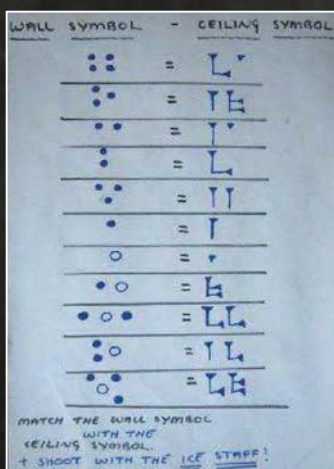 WALL SYMBOL - CEILING SYMBOL
=
=
=
=
=
=
=
=
=
=
=
MATCH THE WALL SYMBOL
WITH THE
CEILING SYMBOL.
+ SHOOT WITH THE ICE STAFF!